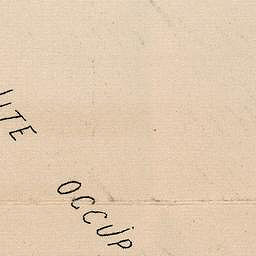 ITE
OCCUP